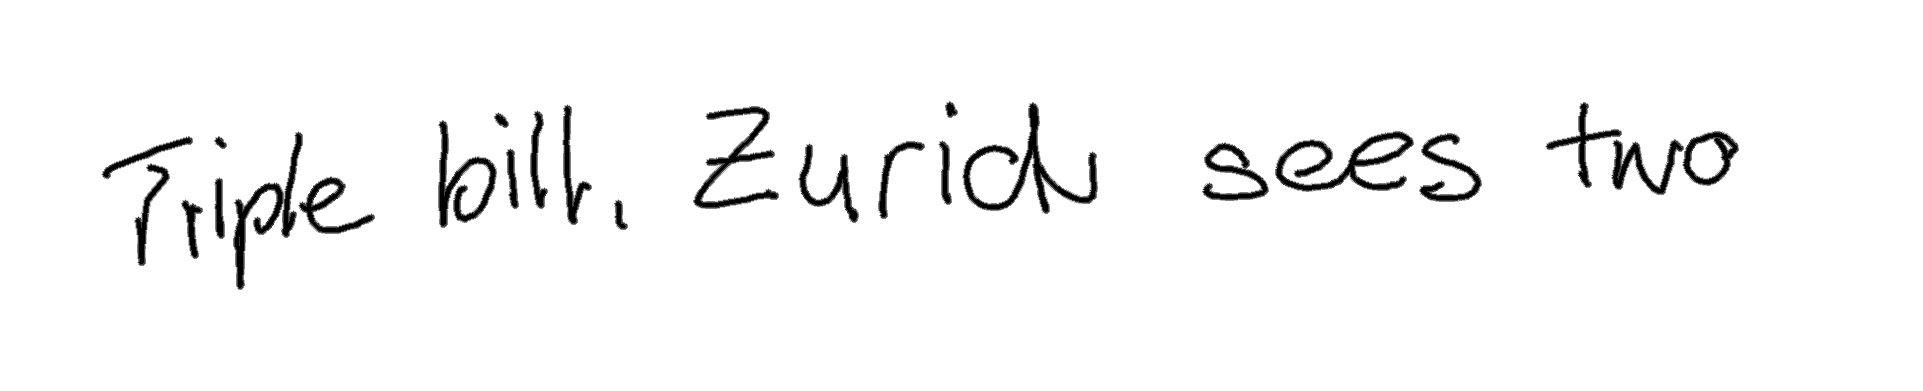 Triple bill. Zurich sees two